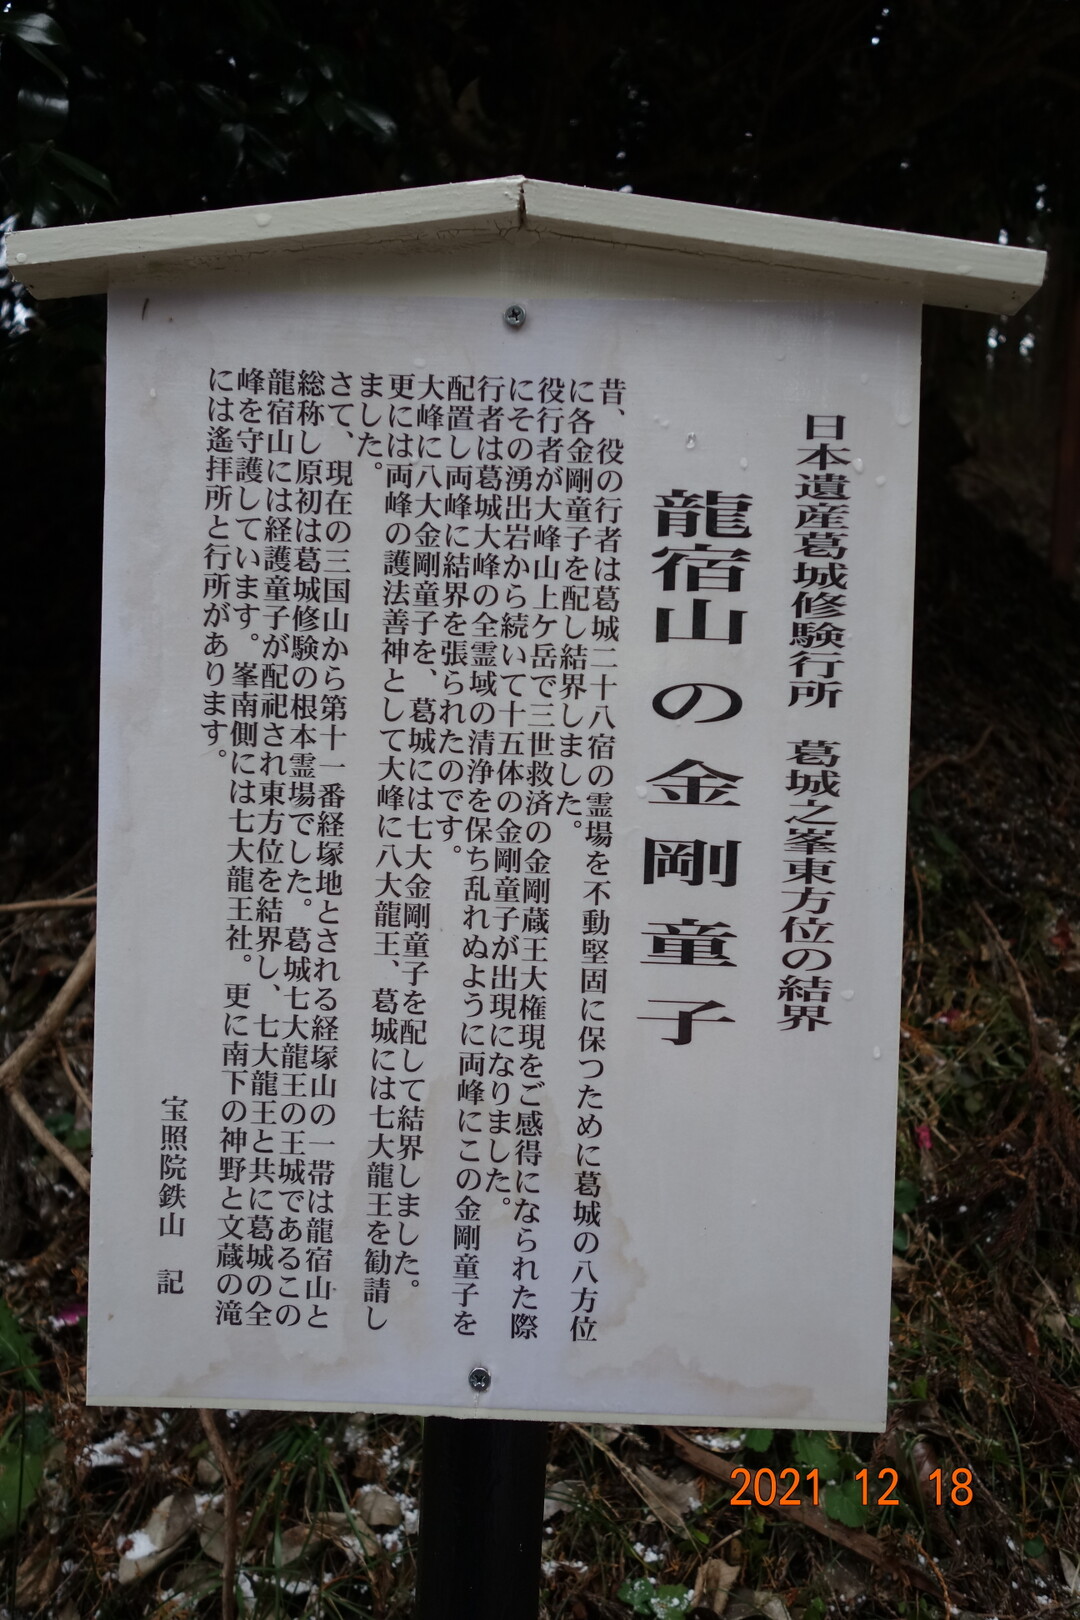 日本遺産葛城修験行所　葛城之峯東方位の結界
龍宿山の金剛童子
昔、役の行者は葛城二十八宿の霊場を不動堅固に保つために葛城の八方位
に各金剛童子を配し結界しました。
役行者が大峰山上ケ岳で三世救済の金剛蔵王大権現をご感得になられた際
にその湧出岩から続いて十五体の金剛童子が出現になりました。
行者は葛城大峰の全霊域の清浄を保ち乱れぬように両峰にこの金剛童子を
配置し両峰に結界を張られたのです。
大峰に八大金剛童子を、葛城には七大金剛童子を配して結界しました。
更には両峰の護法善神として大峰に八大龍王、葛城には七大龍王を勧請し
ました。
さて、現在の三国山から第十一番経塚地とされる経塚山の一帯は龍宿山と
総称し原初は葛城修験の根本霊場でした。葛城七大龍王の王城であるこの
龍宿山には経護童子が配祀され東方位を結界し、七大龍王と共に葛城の全
峰を守護しています。峯南側には七大龍王社。更に南下の神野と文蔵の滝
には遙拝所と行所があります。
宝照院鉄山　記
2021 12 18